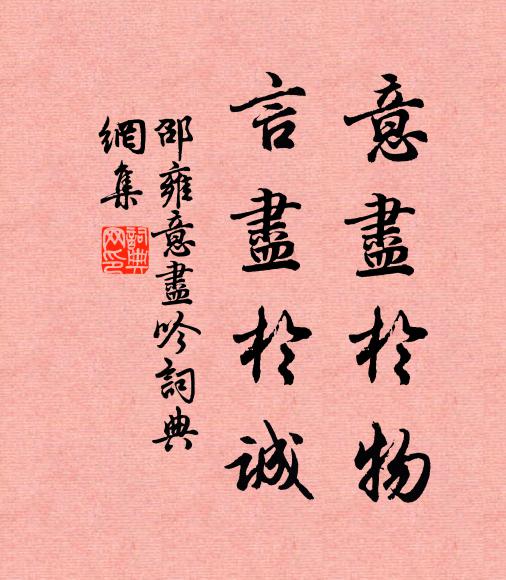 意盡於物
言盡於誠
邵雍意盡吟詞典
網集
詞典
网印